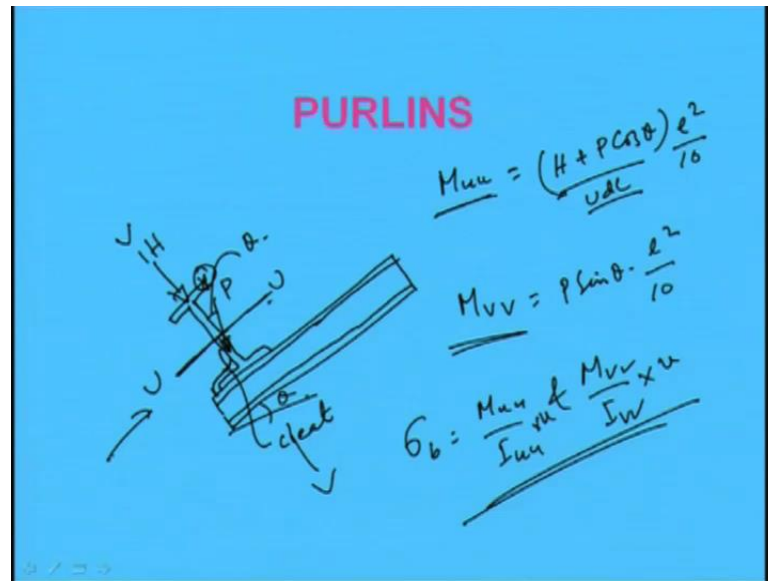 PURLINS
Muu = (H + P Cosθ) l²/10
udl
Mvv = P Sinθ · l²/10
σb = Muu/Iuu × u & Mvv/Ivv × u
V
H
θ.
P
U
U
θ.
cleat
V